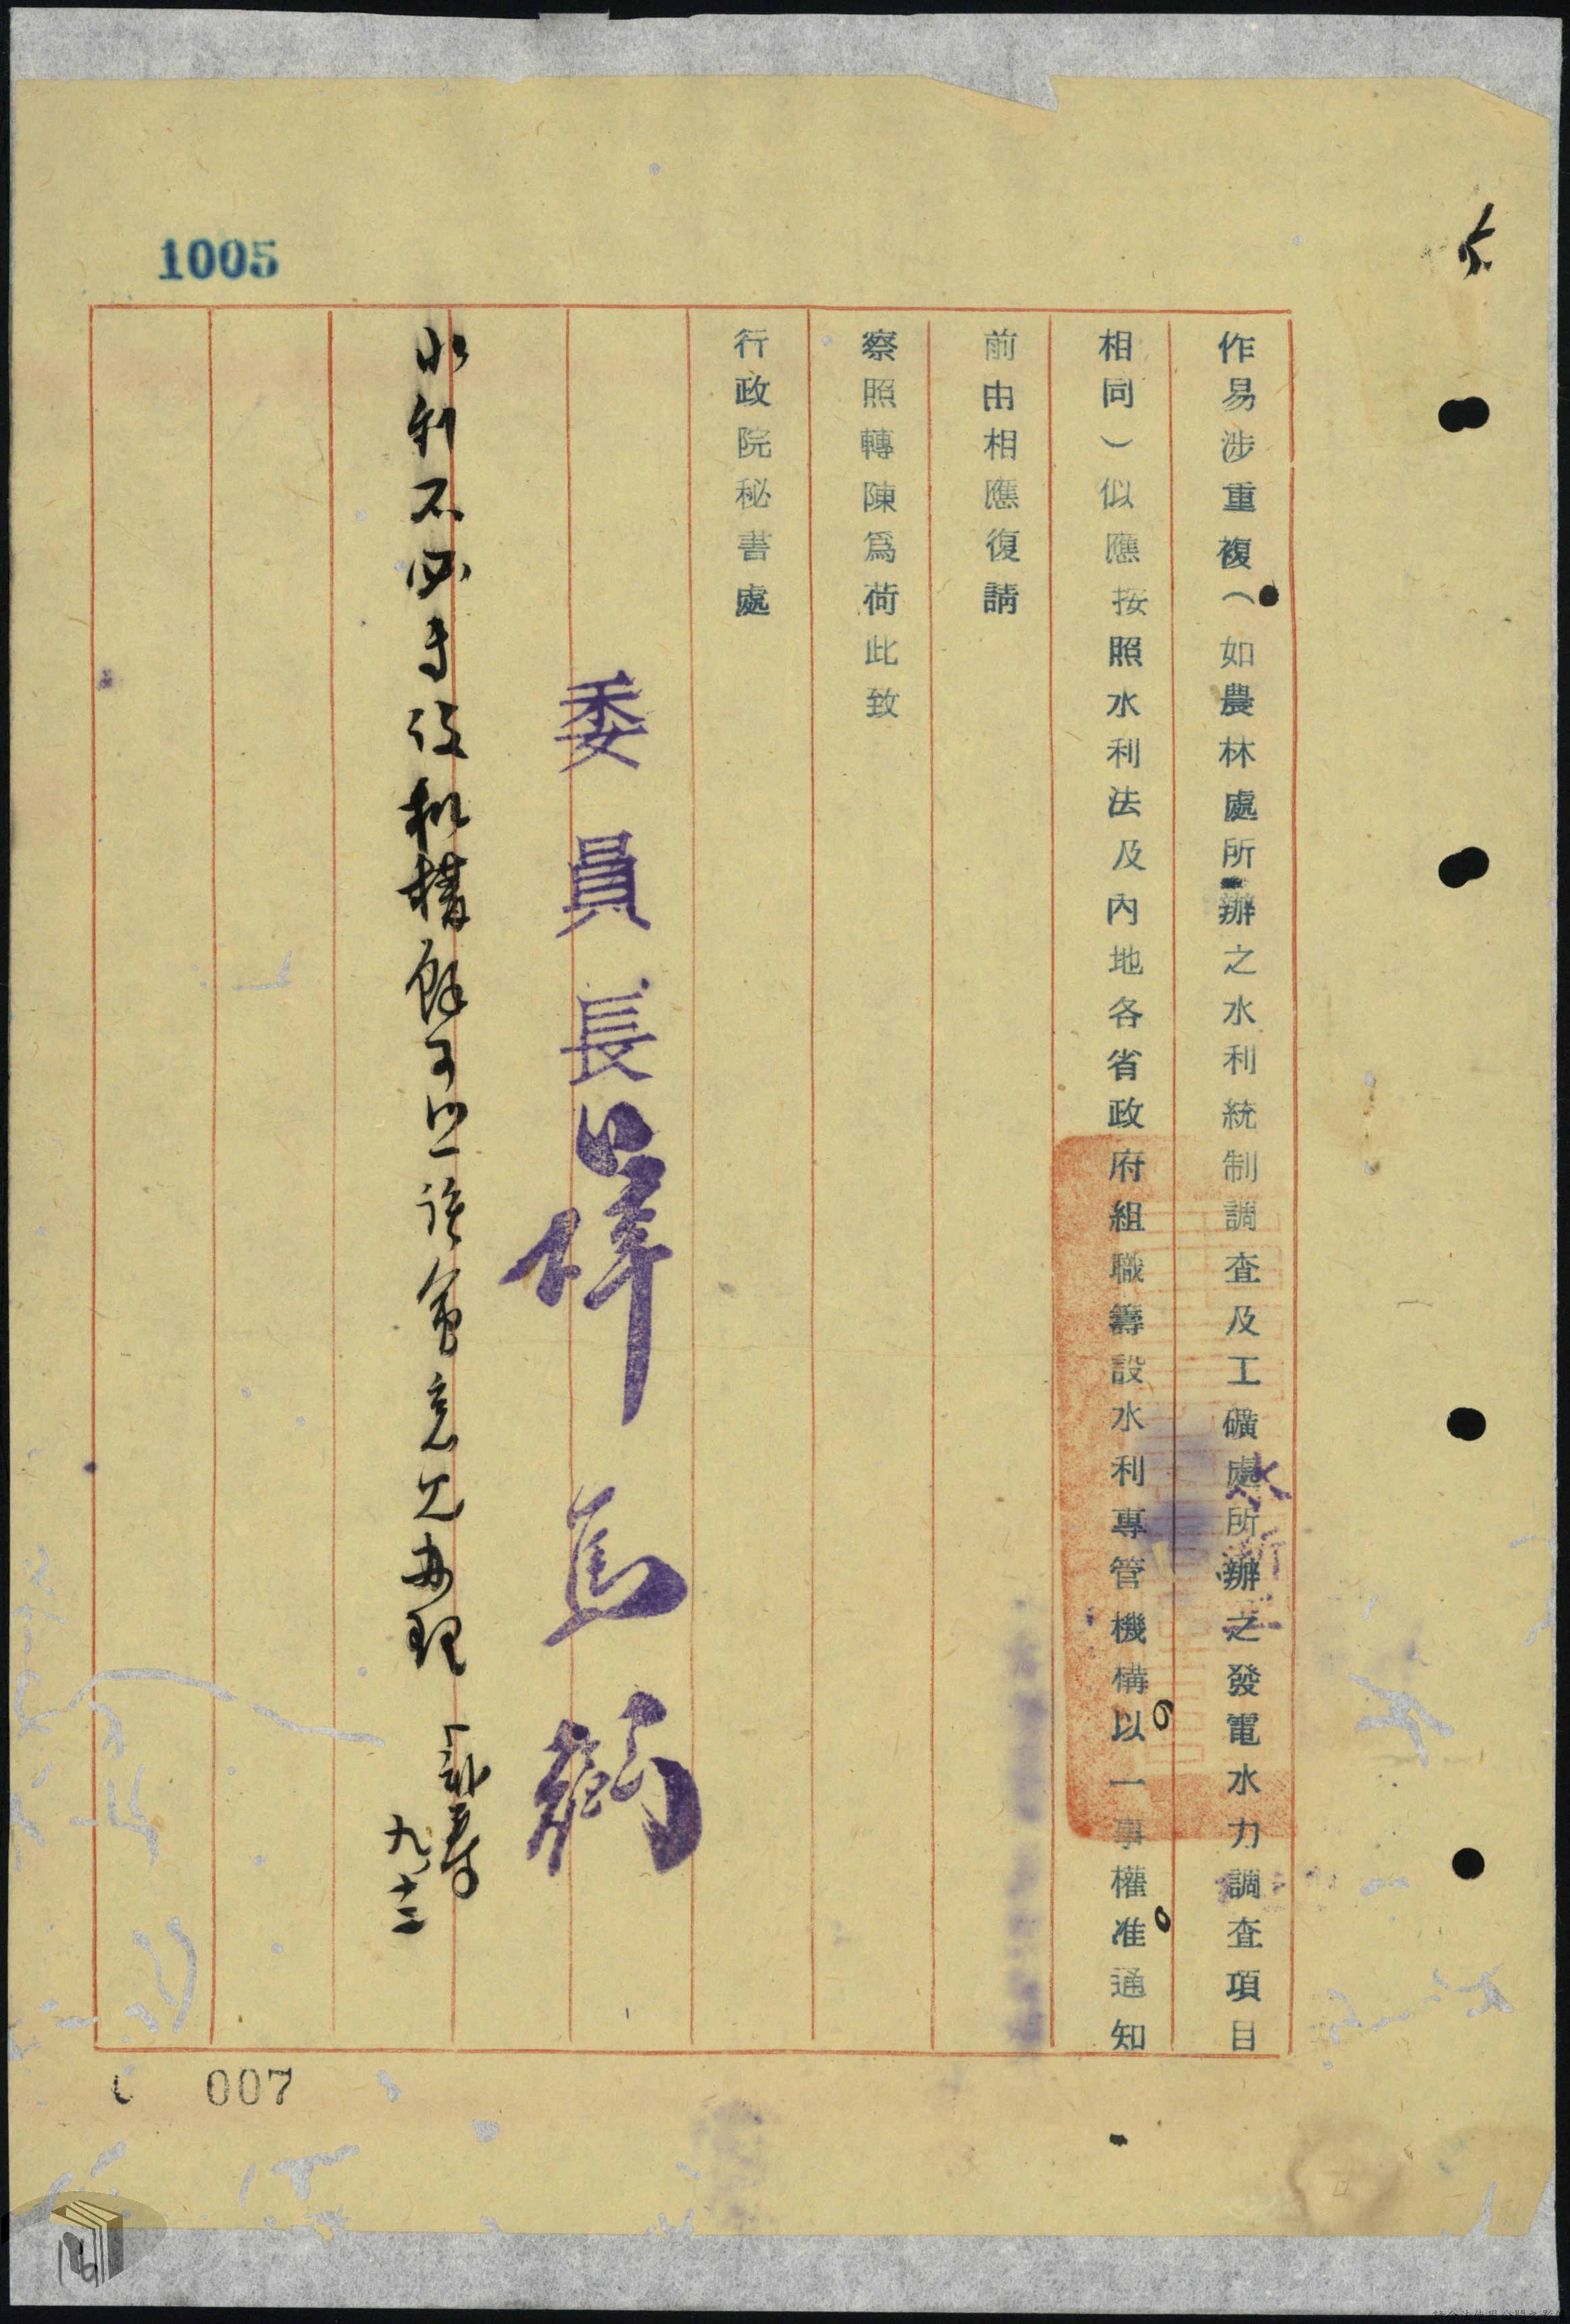 作易涉重複（如農林處所辦之水利統制調查及工礦處所辦之發電水力調查項目
相同）似應按照水利法及內地各省政府組職籌設水利專管機構以一事權准通知
前由相應復請
察照轉陳爲荷此致
行政院秘書處
委員長
水利不必專設機構餘可照該會意見辦理
九、十三
1005
007
16